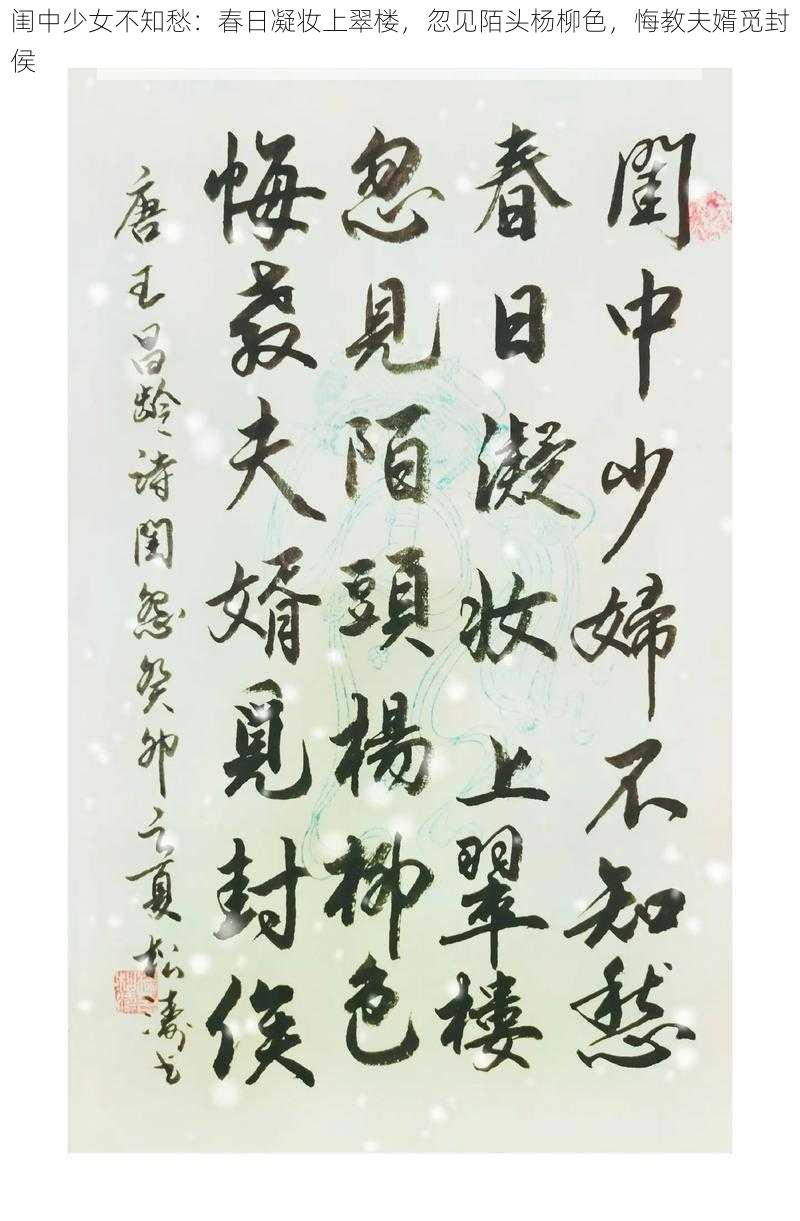 闺中少女不知愁：春日凝妆上翠楼，忽见陌头杨柳色，悔教夫婿觅封
侯
閨中少婦不知愁
春日凝妝上翠樓
忽見陌頭楊柳色
悔教夫婿覓封侯
唐王昌齡詩閨怨癸卯之夏松濤書